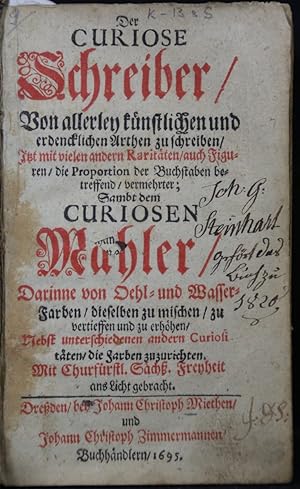 K-B & S
Der
CURIOSE
Schreiber /
Von allerley künstlichen und
erdencklichen Arthen zu schreiben /
Itzt mit vielen andern Raritäten / auch Figu-
ren / die Proportion der Buchstaben be-
treffend / vermehrter;
Sambt dem
CURIOSEN
Mahler /
Joh. G.
Steinhart
gehört das
Buch zu
1820
Darinne von Oehl- und Wasser-
Farben / dieselben zu mischen / zu
vertieffen und zu erhöhen /
Nebst unterschiedenen andern Curiosi
täten / die Farben zuzurichten.
Mit Churfürstl. Sächß. Freyheit
ans Licht gebracht.
Dreßden / bey Johann Christoph Miethen /
und
Johann Christoph Zimmermannen /
Buchhändlern / 1695.